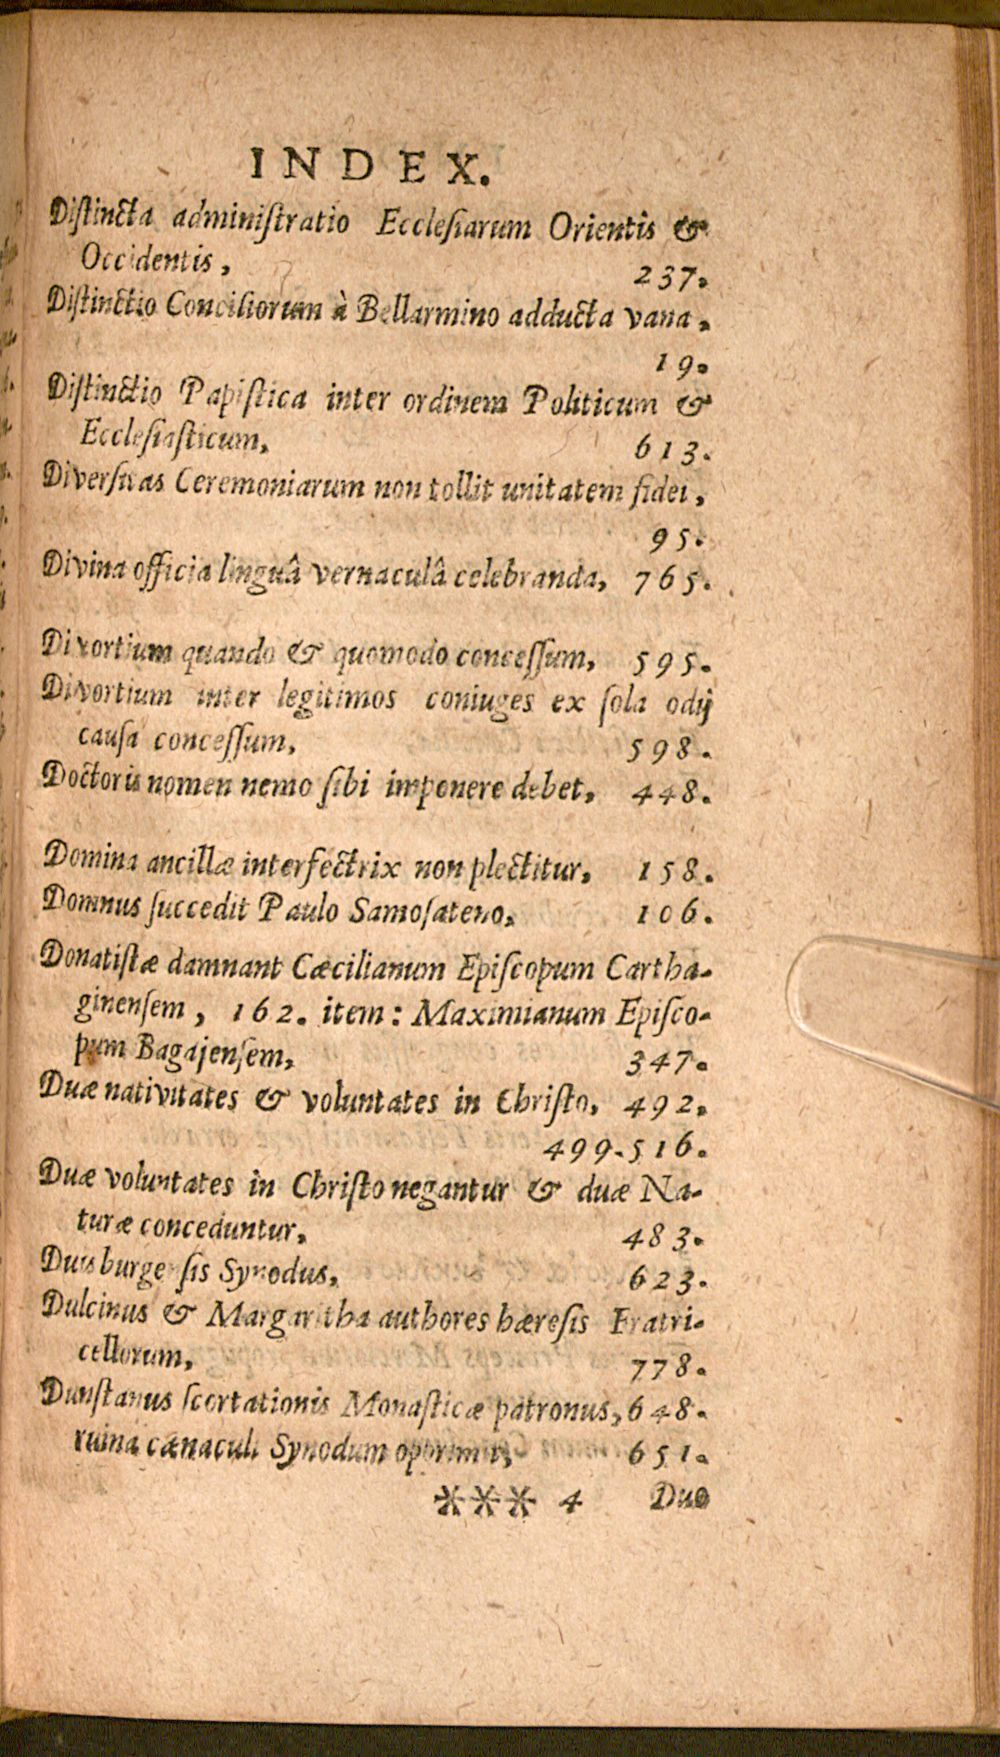 INDEX.
Diſtincta adminiſtratio Eccleſiarum Orientis &
Occidentis, 237.
Diſtinctio Conciliorum à Bellarmino adducta vana,
19.
Diſtinctio Papiſtica inter ordinem Politicum &
Eccleſiaſticum, 613.
Diverſitas Ceremoniarum non tollit unitatem fidei,
95.
Divina officia linguâ vernaculâ celebranda, 765.
Divortium quando & quomodo conceſſum, 595.
Divortium inter legitimos coniuges ex ſola odij
cauſa conceſſum, 598.
Doctoris nomen nemo ſibi imponere debet, 448.
Domina ancillæ interfectrix non plectitur, 158.
Domnus ſuccedit Paulo Samoſateno, 106.
Donatiſtæ damnant Cæcilianum Epiſcopum Cartha-
ginenſem, 162. item: Maximianum Epiſco-
pum Bagajenſem, 347.
Duæ nativitates & voluntates in Chriſto, 492.
499.516.
Duæ voluntates in Chriſto negantur & duæ Na-
turæ conceduntur, 483.
Duisburgenſis Synodus, 623.
Dulcinus & Margaritha authores hæreſis Fratri-
cellorum, 778.
Dunſtanus ſcortationis Monaſticæ patronus, 648.
ruina cænaculi Synodum opprimit, 651.
*** 4 Duo